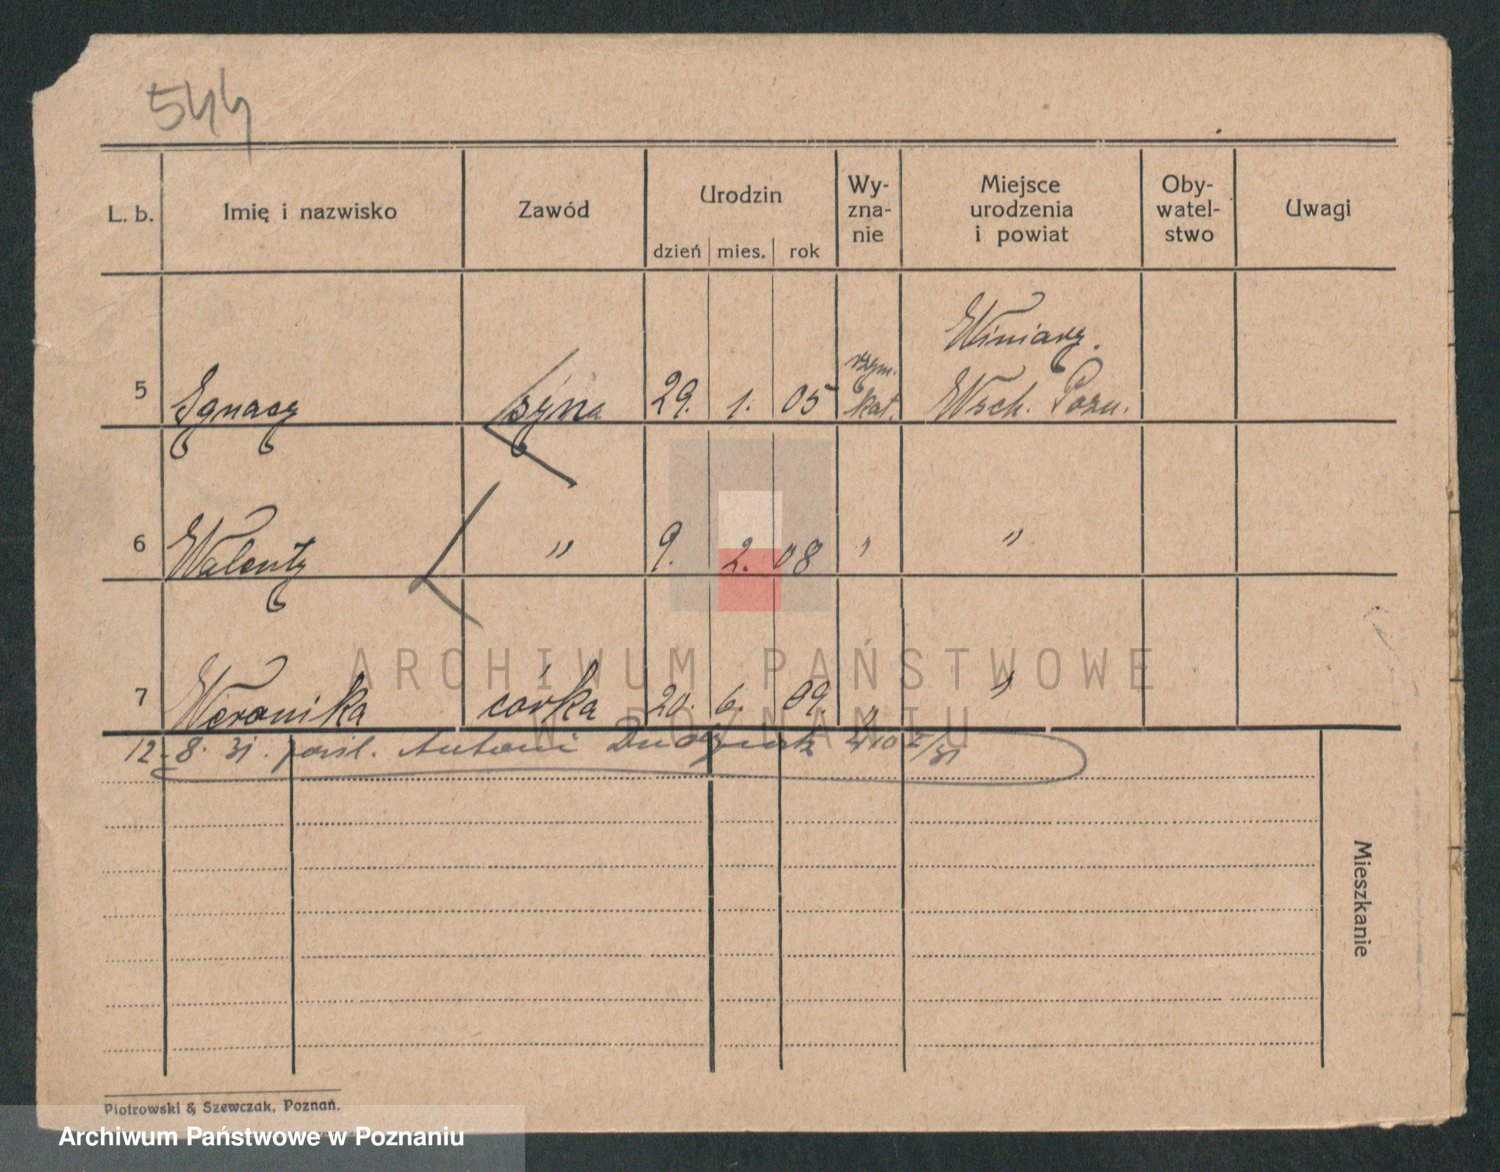 544
L. b. Imię i nazwisko Zawód Urodzin Wy- zna- nie Miejsce urodzenia i powiat Oby- watel- stwo Uwagi
dzień mies. rok
5 Ignacy syn 29. 1. 05 rzym. kat. Winiary. Wsch. Pozn.
6 Walenty " 9. 2. 08 " "
7 Weronika córka 20. 6. 09. " "
12.8.31. Antoni
Mieszkanie
Piotrowski & Szewczak, Poznań.
ARCHIWUM PAŃSTWOWE
W POZNANIU
Archiwum Państwowe w Poznaniu